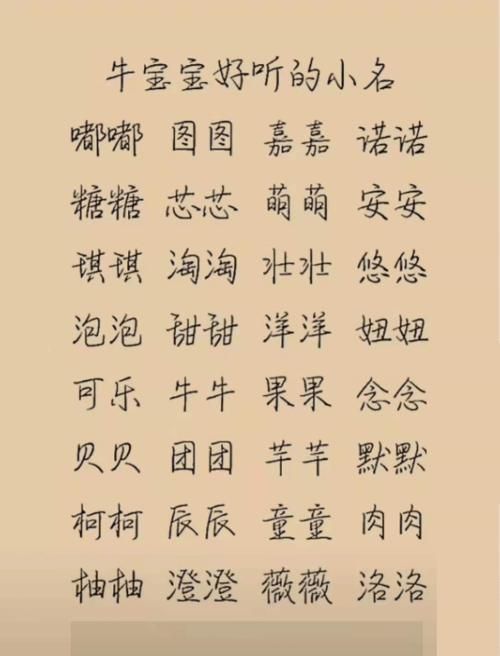 牛宝宝好听的小名
嘟嘟 图图 嘉嘉 诺诺
糖糖 芯芯 萌萌 安安
琪琪 淘淘 壮壮 悠悠
泡泡 甜甜 洋洋 妞妞
可乐 牛牛 果果 念念
贝贝 团团 芊芊 默默
柯柯 辰辰 童童 肉肉
柚柚 澄澄 薇薇 洛洛